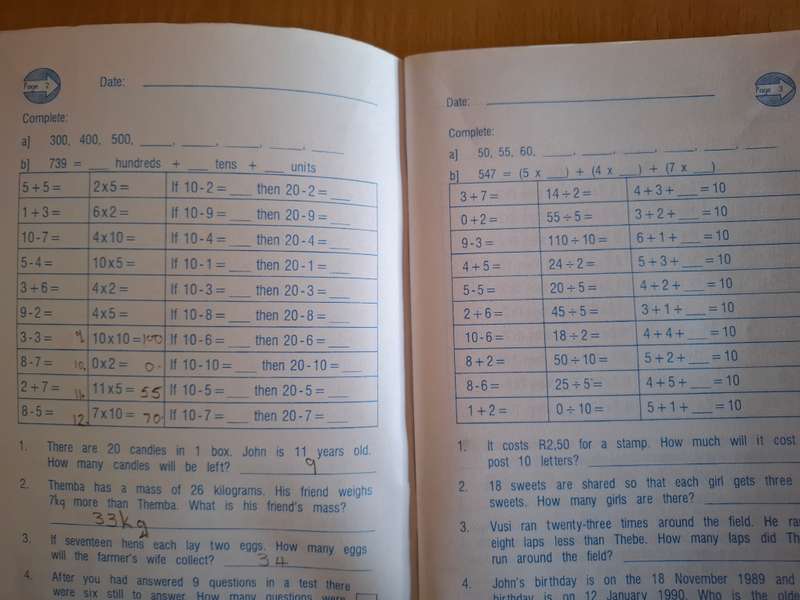 Page 2
Date:
Complete:
a] 300, 400, 500, ___, ___, ___, ___, ___
b] 739 = ___ hundreds + ___ tens + ___ units
5+5= 2x5= If 10-2=___ then 20-2=___
1+3= 6x2= If 10-9=___ then 20-9=___
10-7= 4x10= If 10-4=___ then 20-4=___
5-4= 10x5= If 10-1=___ then 20-1=___
3+6= 4x2= If 10-3=___ then 20-3=___
9-2= 4x5= If 10-8=___ then 20-8=___
3-3= 9. 10x10=100 If 10-6=___ then 20-6=___
8-7= 10. 0x2= 0. If 10-10=___ then 20-10=___
2+7= 11. 11x5= 55 If 10-5=___ then 20-5=___
8-5= 12. 7x10= 70. If 10-7=___ then 20-7=___
1. There are 20 candles in 1 box. John is 11 years old.
How many candles will be left? 9
2. Themba has a mass of 26 kilograms. His friend weighs
7kg more than Themba. What is his friend's mass?
33kg
3. If seventeen hens each lay two eggs. How many eggs
will the farmer's wife collect? 34
4. After you had answered 9 questions in a test there
were six still to answer. How many questions were
Page 3
Date:
Complete:
a] 50, 55, 60, ___, ___, ___, ___, ___, ___
b] 547 = (5 x ___) + (4 x ___) + (7 x ___)
3+7= 14÷2= 4+3+___=10
0+2= 55÷5= 3+2+___=10
9-3= 110÷10= 6+1+___=10
4+5= 24÷2= 5+3+___=10
5-5= 20÷5= 4+2+___=10
2+6= 45÷5= 3+1+___=10
10-6= 18÷2= 4+4+___=10
8+2= 50÷10= 5+2+___=10
8-6= 25÷5= 4+5+___=10
1+2= 0÷10= 5+1+___=10
1. It costs R2,50 for a stamp. How much will it cost
post 10 letters?
2. 18 sweets are shared so that each girl gets three
sweets. How many girls are there?
3. Vusi ran twenty-three times around the field. He ran
eight laps less than Thebe. How many laps did Th
run around the field?
4. John's birthday is on the 18 November 1989 and
birthday is on 12 January 1990. Who is the olde